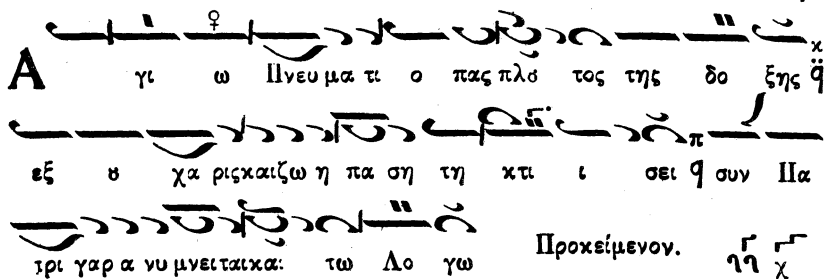 Α γι ω Πνευ μα τι ο πας πλȣ τος της δο ξης
εξ ȣ χα ρις και ζω η πα ση τη κτι ι σει συν Πα
τρι γαρ α νυ μνει ται και τω Λο γω Προκείμενον.